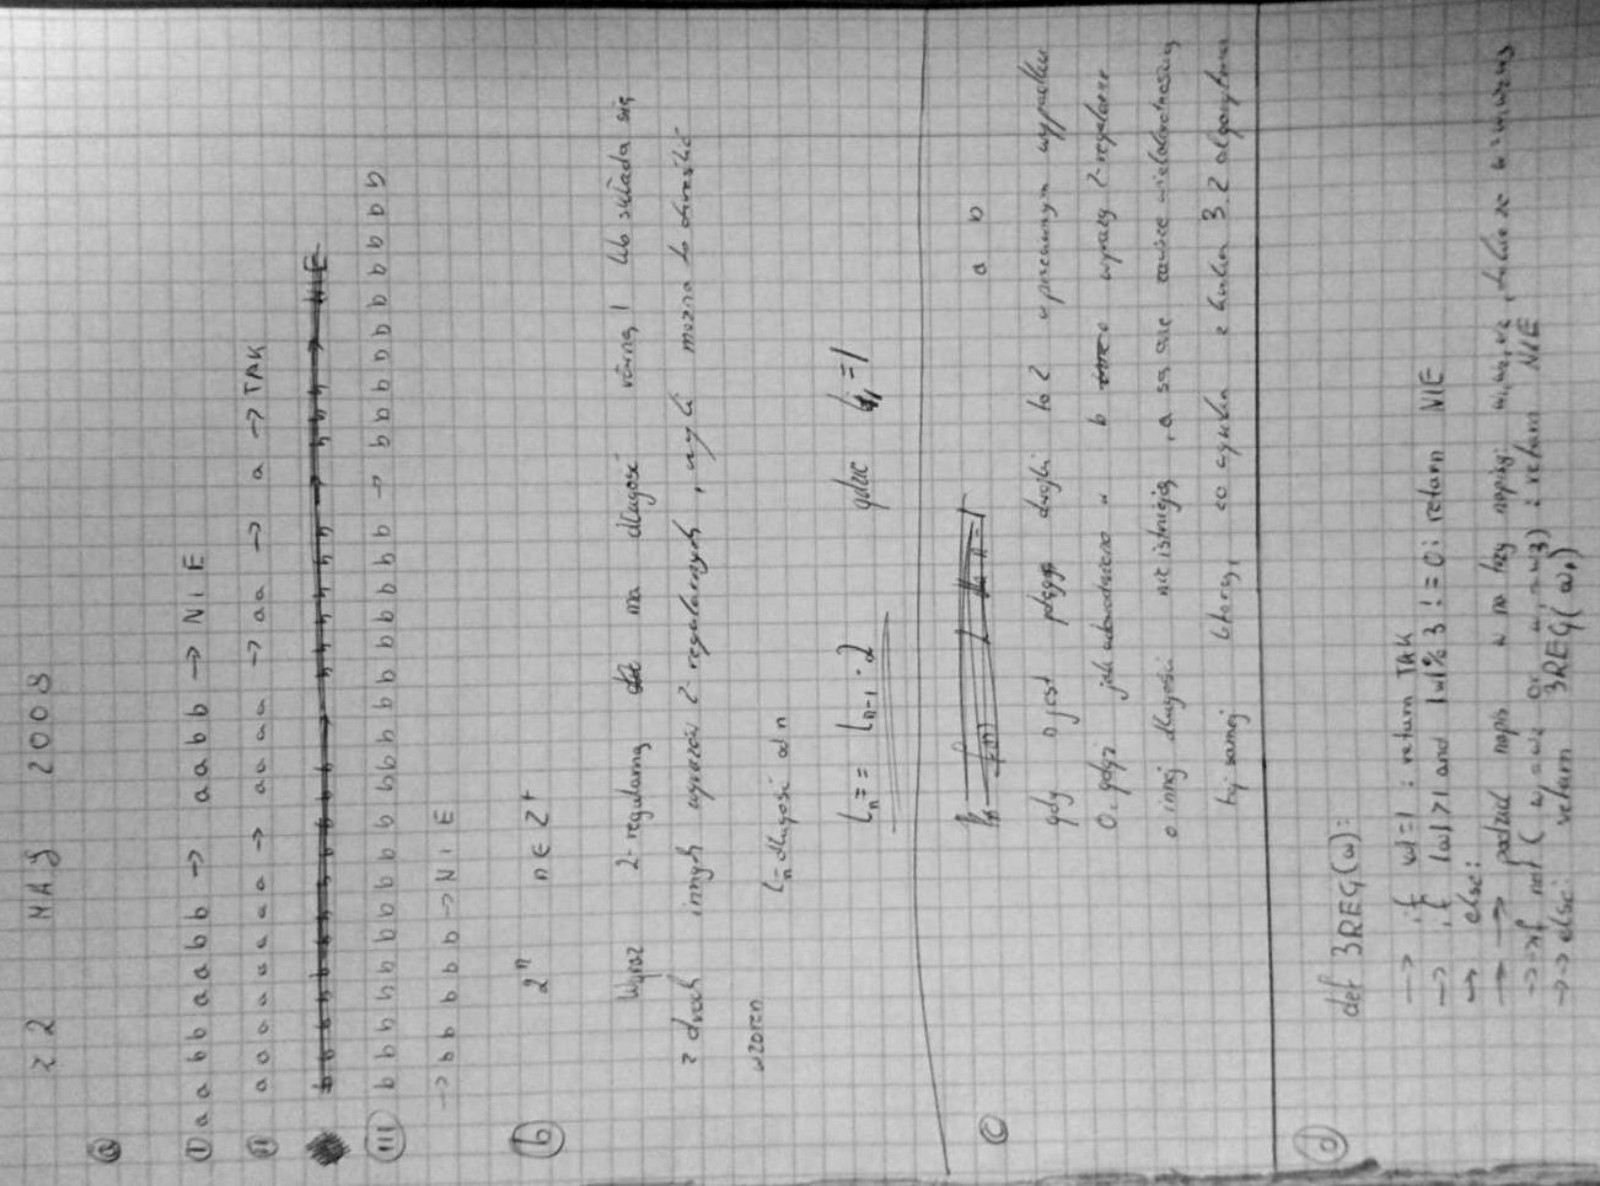 z 2 MAJ 2008
a
I a a b b a a b b → a a b b → N I E
II a a a a a a a a → a a a a → a a → a → TAK
III b b b b b b b b b b b b b b b b b b b b → b b b b b b b b b b
→ b b b b b → N I E
b 2ⁿ n ∈ Z⁺
Wyraz 2-regularną ma długość równą 1 lub składa się
z dwoch innych wyrazów 2-regularnych, czyli można to określić
wzorem
Lₙ = długość od n
Lₙ = = Lₙ₋₁ · 2 gdzie L₁ = 1
c a b
gdy n jest potęgą dwójki to 2 w przeciwnym wypadku
0, gdyż jak udowodniono w b wyrazy 2-regularne
o innej długości nie istnieją, a są one zawsze wielokrotnością
tej samej litery, co wynika z kroku 3.2 algorytmu
d
def 3REG(w):
→ if |w|=1 : return TAK
→ if |w|>1 and |w|%3 != 0: return NIE
→ else:
→ → podziel napis w na trzy napisy: w₁, w₂, w₃, takie że w = w₁w₂w₃
→ → if not ( w₁ = w₂ or w₁ = w₃) : return NIE
→ → else: return 3REG(w₁)